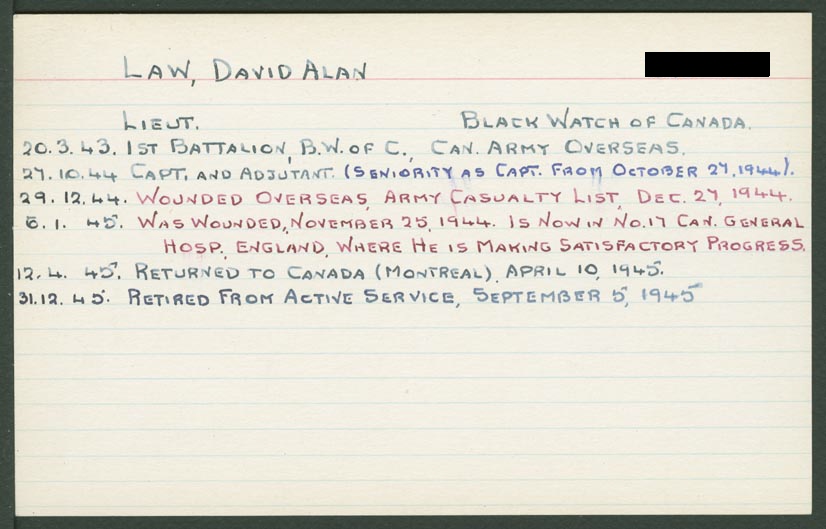 LAW, DAVID ALAN
LIEUT. BLACK WATCH OF CANADA.
20.3.43. 1ST BATTALION, B.W. OF C., CAN. ARMY OVERSEAS.
27.10.44 CAPT. AND ADJUTANT. (SENIORITY AS CAPT. FROM OCTOBER 27, 1944).
29.12.44. WOUNDED OVERSEAS, ARMY CASUALTY LIST, DEC. 27, 1944.
6.1.45. WAS WOUNDED, NOVEMBER 25, 1944. IS NOW IN NO.17 CAN. GENERAL
HOSP., ENGLAND, WHERE HE IS MAKING SATISFACTORY PROGRESS.
12.4.45. RETURNED TO CANADA (MONTREAL), APRIL 10, 1945.
31.12.45. RETIRED FROM ACTIVE SERVICE, SEPTEMBER 5, 1945